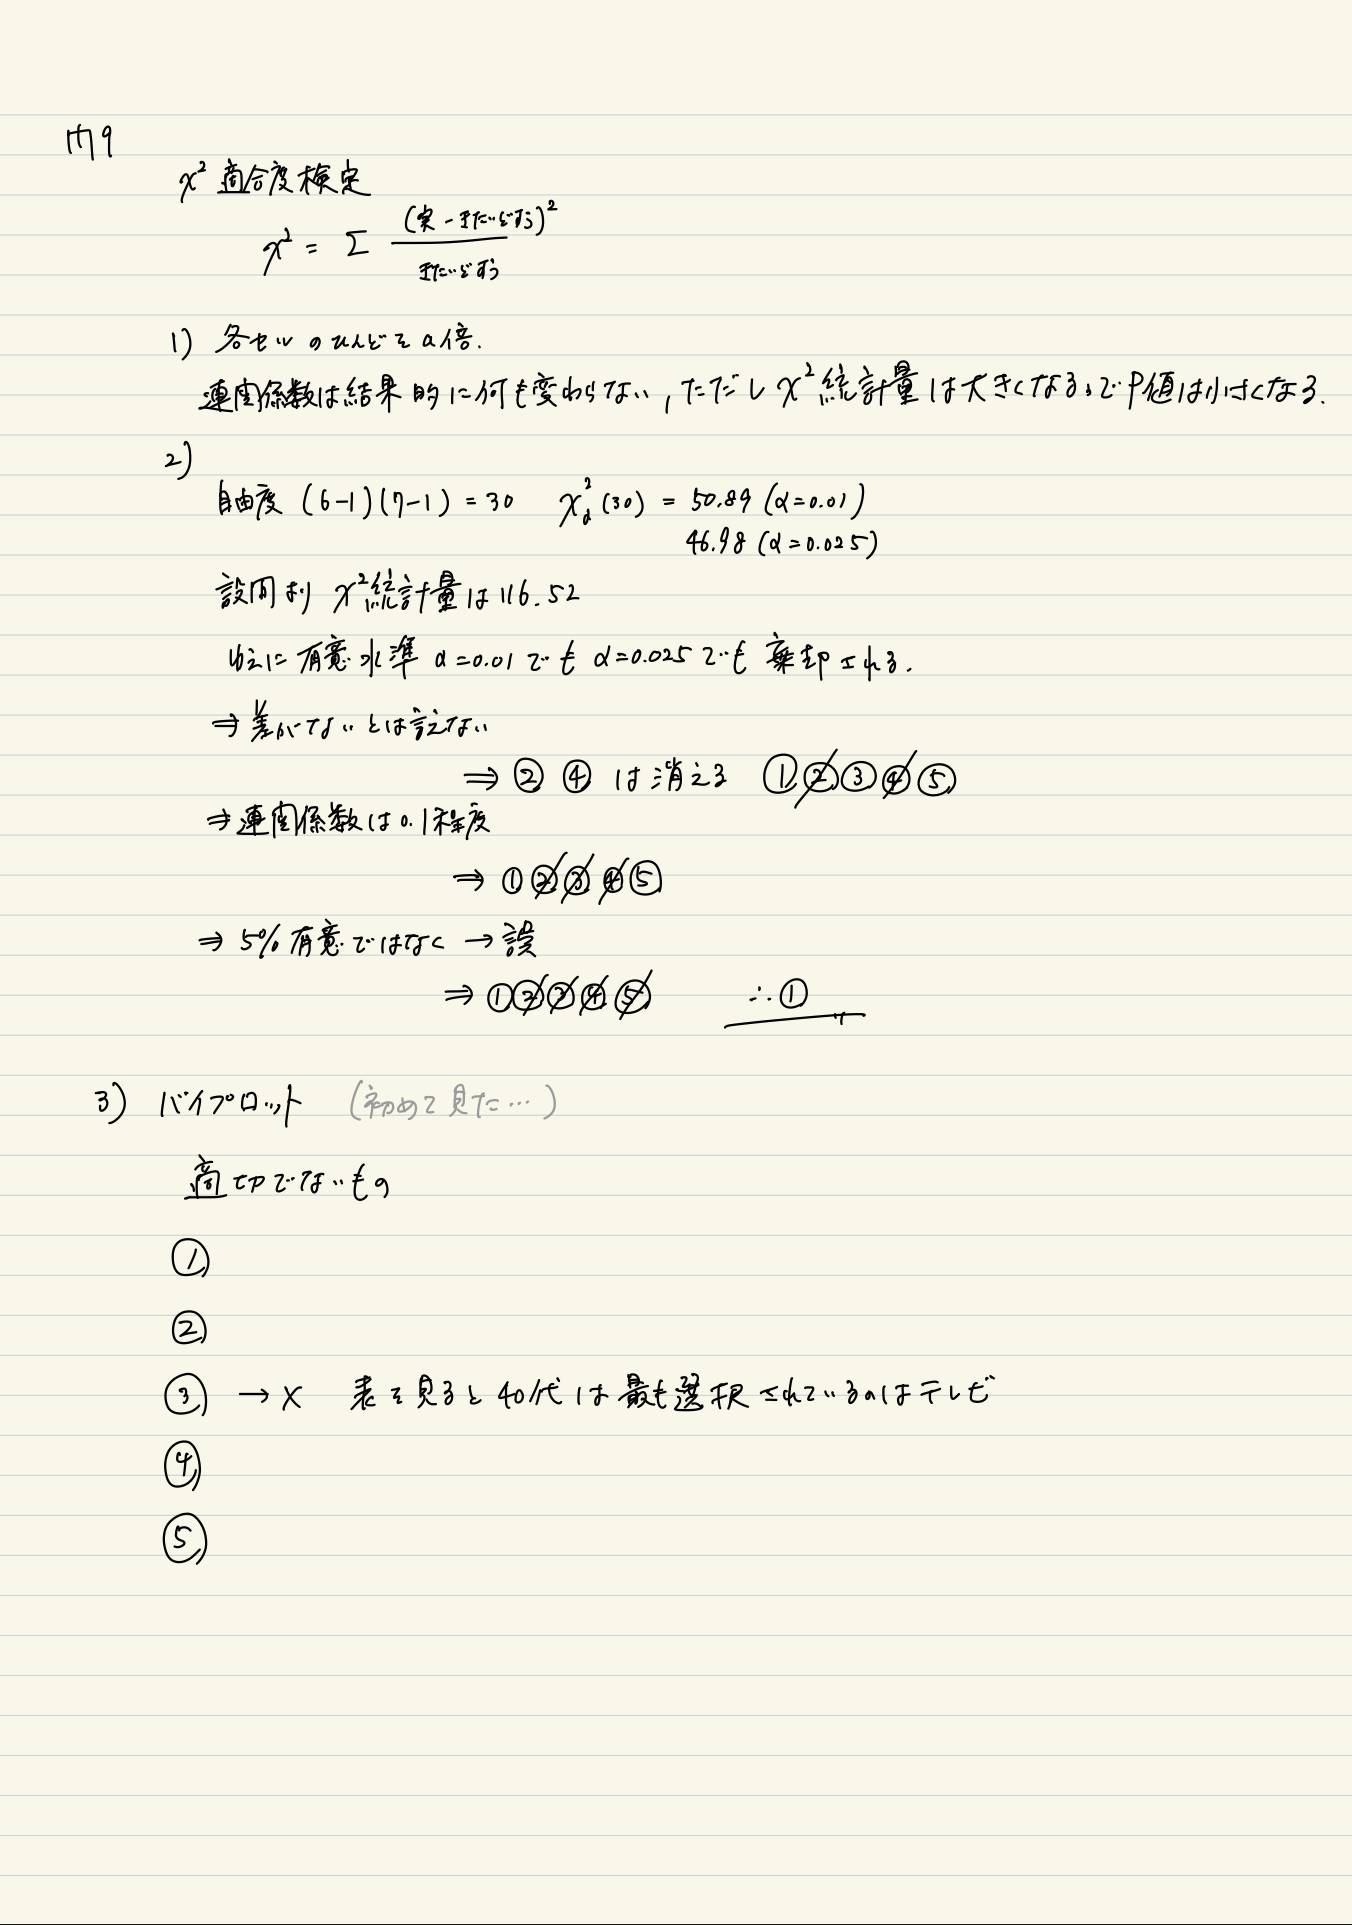 問9
χ² 適合度検定
χ² = Σ (実 - きたいどすう)² / きたいどすう
1) 各セルのひんどを a倍.
連関係数は結果的に何も変わらない, ただし χ²統計量は大きくなるので P値は小さくなる.
2)
自由度 (6-1)(7-1) = 30 χ²α(30) = 50.89 (α=0.01)
46.98 (α=0.025)
設問より χ²統計量は 116.52
ゆえに 有意水準 α=0.01 でも α=0.025 でも 棄却される.
⇒ 差がないとは言えない
⇒ ② ④ は消える ① ② ③ ④ ⑤
⇒ 連関係数は 0.1程度
⇒ ① ② ③ ④ ⑤
⇒ 5% 有意ではなく → 誤
⇒ ① ② ③ ④ ⑤ ∴ ①
3) バイプロット (初めて見た…)
適切でないもの
①
②
③ → × 表を見ると 40代は最も選択されているのはテレビ
④
⑤